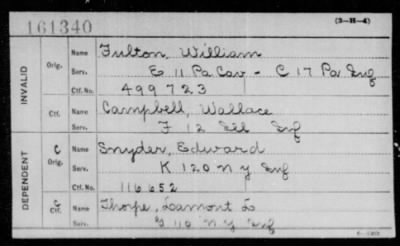 161340
(3-H-4)
INVALID
Orig.
Name Fulton, William
Serv. E 11 Pa Cav - C 17 Pa Inf
Ctf. No. 499723
Ctf.
Name Campbell, Wallace
Serv. F 12 Ill Inf
DEPENDENT
C
Orig.
Name Snyder, Edward
Serv. K 120 N Y Inf
Ctf. No. 116652
C
Ctf.
Name Thorpe, Lamont L
Serv. 110 N Y Inf